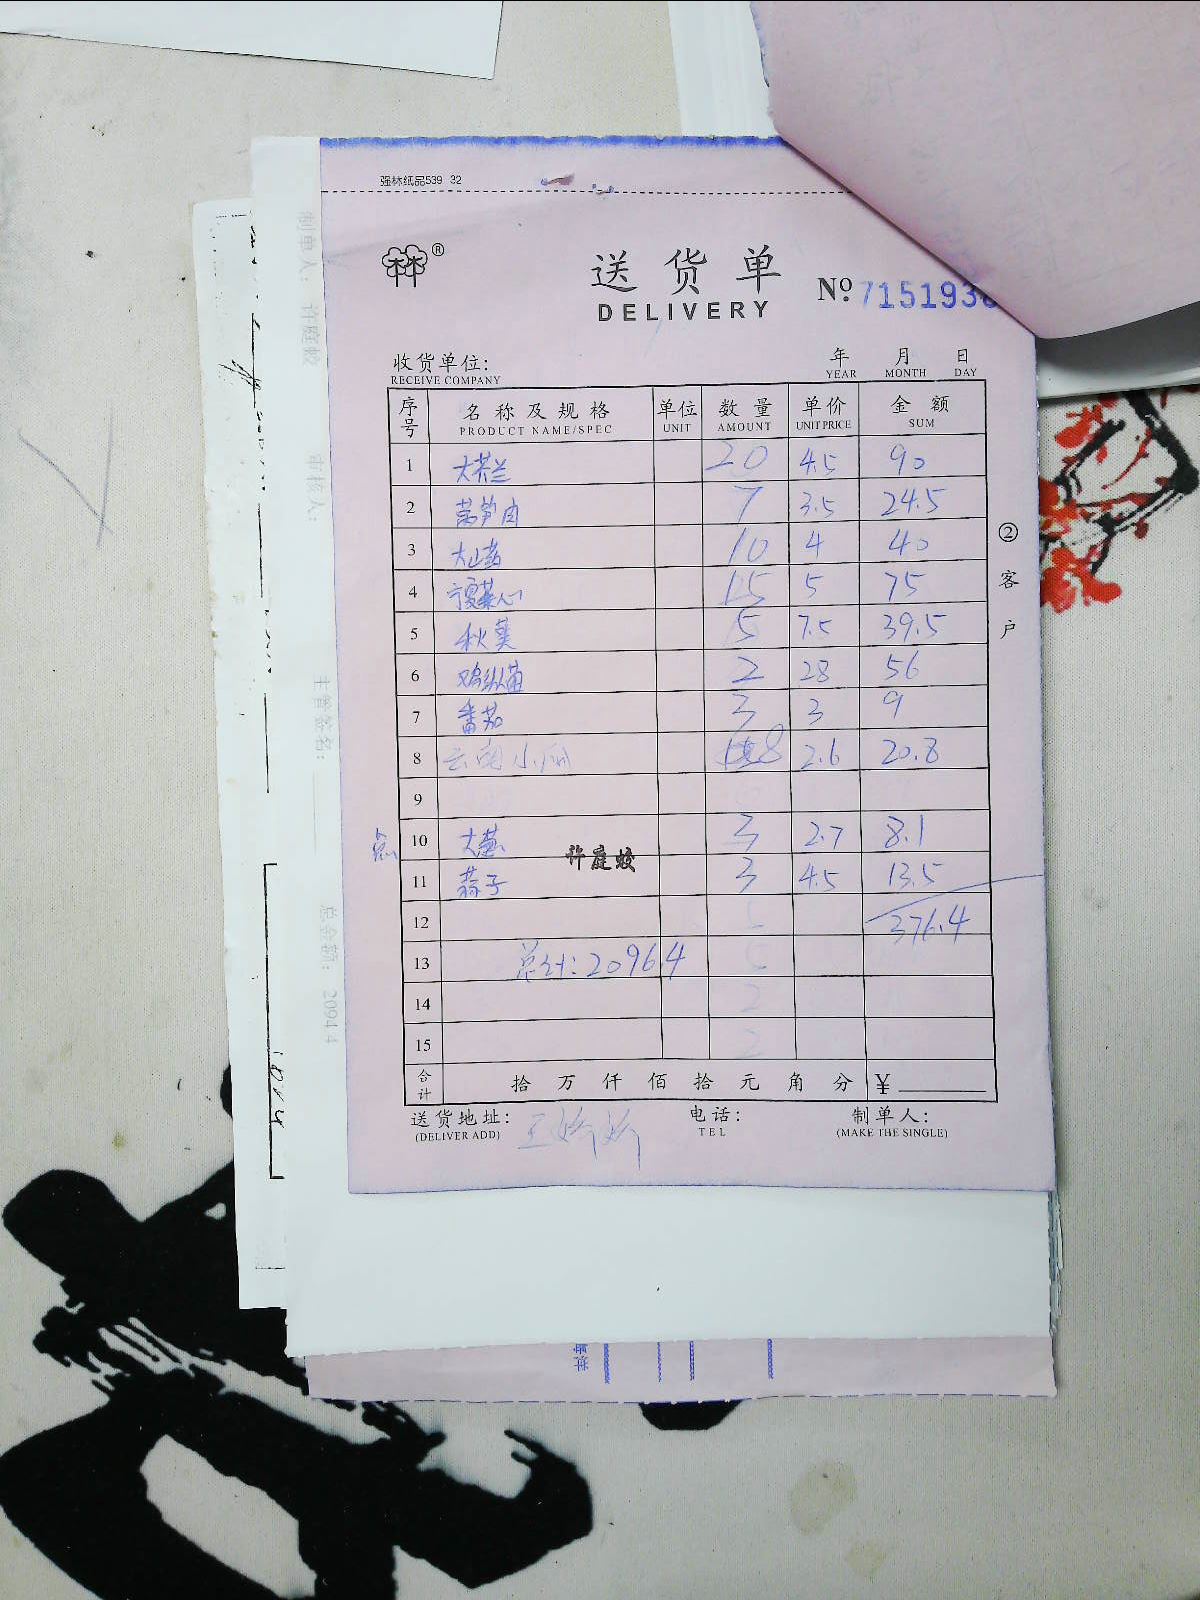 强林纸品539 32
林®
送货单
DELIVERY
Nº 715193
收货单位:
RECEIVE COMPANY
年 月 日
YEAR MONTH DAY
序号 名称及规格 单位 数量 单价 金额
PRODUCT NAME/SPEC UNIT AMOUNT UNIT PRICE SUM
1 大芥兰 20 4.5 90
2 莴笋肉 7 3.5 24.5
3 大山药 10 4 40
4 宁夏菜心 15 5 75
5 秋葵 5 7.5 39.5
6 鸡枞菌 2 28 56
7 番茄 3 3 9
8 云南小瓜 8 2.6 20.8
9
10 大葱 3 2.7 8.1
许庭蛟
11 蒜子 3 4.5 13.5
12 376.4
13 总计:2096.4
14
15
合计 拾 万 仟 佰 拾 元 角 分 ¥
送货地址: 电话: 制单人:
(DELIVER ADD) TEL (MAKE THE SINGLE)
②客户
制单人: 许庭蛟
审核人:
主管签名:
总金额: 2094.4